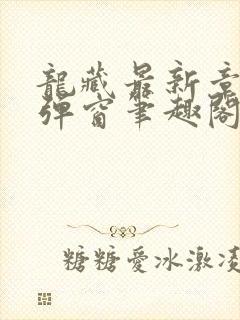 龍藏最新章
彈窗筆趣閣
糖糖愛冰激凌